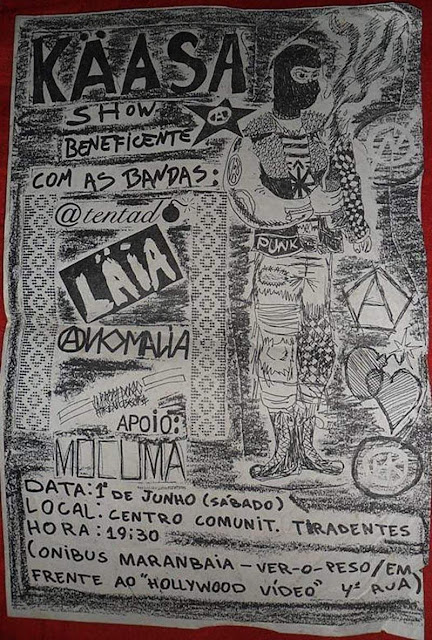 KÄASA
SHOW
BENEFICENTE
COM AS BANDAS:
@tentado
LÄIA
ANOMALIA
APOIO:
MOCUMA
PUNK
DATA: 1º DE JUNHO (SÁBADO)
LOCAL: CENTRO COMUNIT. TIRADENTES
HORA: 19:30
(ONIBUS MARANBAIA - VER-O-PESO/EM
FRENTE AO "HOLLYWOOD VÍDEO" 4ª RUA)